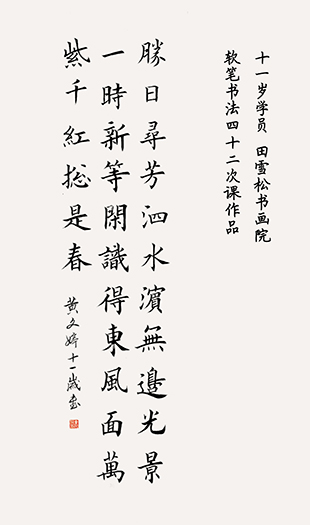 十一岁学员 田雪松书画院
软笔书法四十二次课作品
勝日尋芳泗水濱無邊光景
一時新等閑識得東風面萬
紫千紅揔是春
黄文婷十一歲書